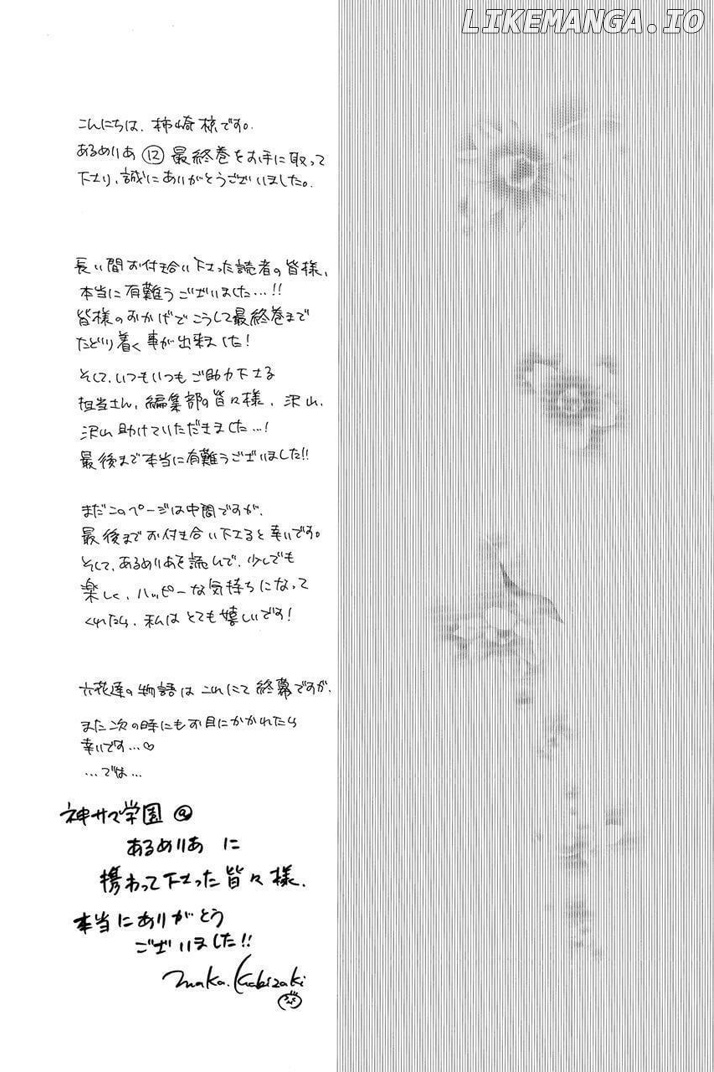 LIKEMANGA.IO
こんにちは、柿崎椋です。
あるめりあ⑫最終巻をお手に取って
下さり、誠にありがとうございました。
長い間お付き合い下さった読者の皆様、
本当に有難うございました…!!
皆様のおかげでこうして最終巻まで
たどり着く事が出来ました!
そして、いつもいつもご助力下さる
担当さん、編集部の皆々様、沢山、
沢山助けていただきました…!
最後まで本当に有難うございました!!
まだこのページは中間ですが、
最後までお付き合い下さると幸いです。
そして、あるめりあを読んで、少しでも
楽しく、ハッピーな気持ちになって
くれたら、私はとても嬉しいです!
六花達の物語はこれにて終幕ですが、
また次の時にもお目にかかれたら
幸いです…♡
…では…
神サマ学園@
あるめりあ に
携わって下さった皆々様、
本当にありがとう
ございました!!
Kakizaki